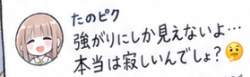 たのピク
強がりにしか見えないよ…
本当は寂しいんでしょ?🤔